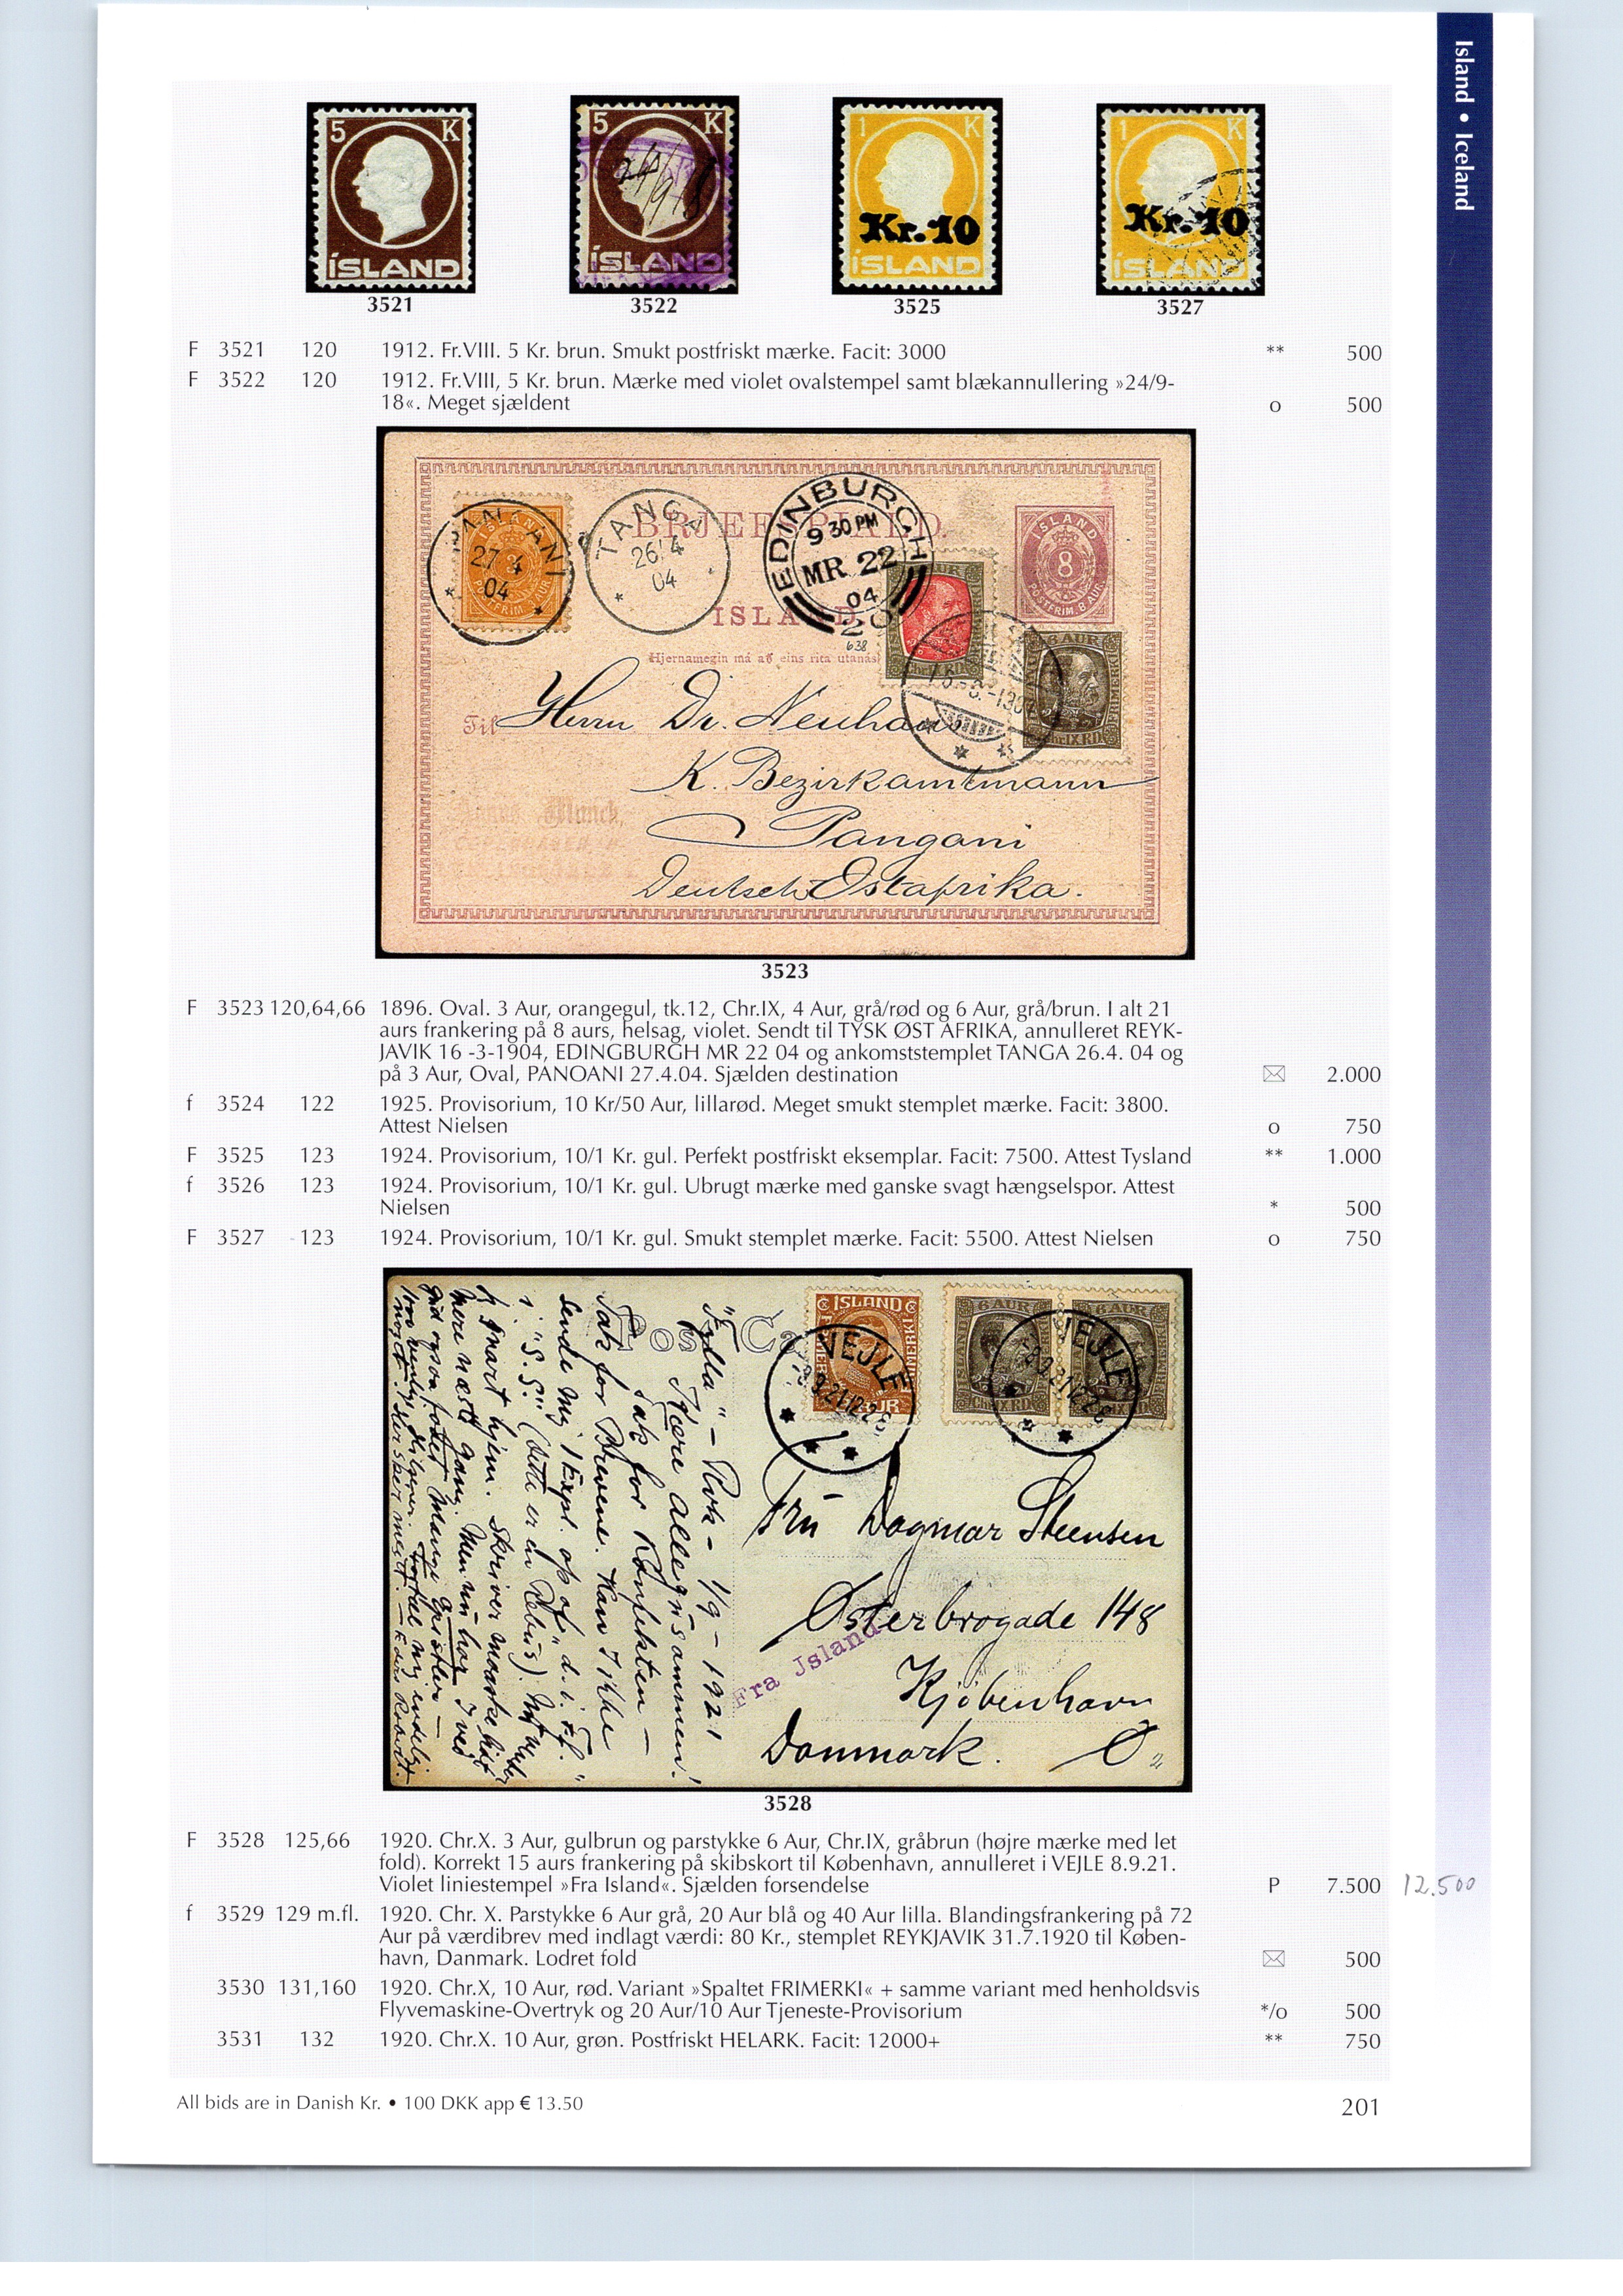 Island • Iceland
5 K
ÍSLAND
3521
5 K
ÍSLAND
3522
1 K
Kr.10
ÍSLAND
3525
1 K
Kr.10
ÍSLAND
3527
F 3521 120 1912. Fr.VIII. 5 Kr. brun. Smukt postfriskt mærke. Facit: 3000 ** 500
F 3522 120 1912. Fr.VIII, 5 Kr. brun. Mærke med violet ovalstempel samt blækannullering »24/9-
18«. Meget sjældent o 500
TANGA
26/4
04
27 4
04
EDINBURGH
9 30 PM
MR 22
04
ÍSLAND
8
POSTFRIM. 8 AUR
ISLAND
638
Hjernamegin má að eins rita utanás
6 AUR
Chr.IX.RD
Til Herrn Dr. Neuhaus
K. Bezirkamtmann
Pangani
Deutsch Ostafrika.
3523
F 3523 120,64,66 1896. Oval. 3 Aur, orangegul, tk.12, Chr.IX, 4 Aur, grå/rød og 6 Aur, grå/brun. I alt 21
aurs frankering på 8 aurs, helsag, violet. Sendt til TYSK ØST AFRIKA, annulleret REYK-
JAVIK 16 -3-1904, EDINGBURGH MR 22 04 og ankomststemplet TANGA 26.4. 04 og
på 3 Aur, Oval, PANOANI 27.4.04. Sjælden destination ✉ 2.000
f 3524 122 1925. Provisorium, 10 Kr/50 Aur, lillarød. Meget smukt stemplet mærke. Facit: 3800.
Attest Nielsen o 750
F 3525 123 1924. Provisorium, 10/1 Kr. gul. Perfekt postfriskt eksemplar. Facit: 7500. Attest Tysland ** 1.000
f 3526 123 1924. Provisorium, 10/1 Kr. gul. Ubrugt mærke med ganske svagt hængselspor. Attest
Nielsen * 500
F 3527 123 1924. Provisorium, 10/1 Kr. gul. Smukt stemplet mærke. Facit: 5500. Attest Nielsen o 750
ISLAND
VEJLE
6 AUR
6 AUR
VEJLE
Chr.IX.RD
Post Ca
"Fylla" - Rvk - 1/9 - 1921
Kære Allegusammen!
Tak for Konfekten -
Tak for Brevene. Kan I ikke
Fru Dagmar Steensen
Østerbrogade 148
Fra Island
Kjøbenhavn
Danmark. Ø
3528
F 3528 125,66 1920. Chr.X. 3 Aur, gulbrun og parstykke 6 Aur, Chr.IX, gråbrun (højre mærke med let
fold). Korrekt 15 aurs frankering på skibskort til København, annulleret i VEJLE 8.9.21.
Violet liniestempel »Fra Island«. Sjælden forsendelse P 7.500 12.500
f 3529 129 m.fl. 1920. Chr. X. Parstykke 6 Aur grå, 20 Aur blå og 40 Aur lilla. Blandingsfrankering på 72
Aur på værdibrev med indlagt værdi: 80 Kr., stemplet REYKJAVIK 31.7.1920 til Køben-
havn, Danmark. Lodret fold ✉ 500
3530 131,160 1920. Chr.X, 10 Aur, rød. Variant »Spaltet FRIMERKI« + samme variant med henholdsvis
Flyvemaskine-Overtryk og 20 Aur/10 Aur Tjeneste-Provisorium */o 500
3531 132 1920. Chr.X. 10 Aur, grøn. Postfriskt HELARK. Facit: 12000+ ** 750
All bids are in Danish Kr. • 100 DKK app € 13.50
201